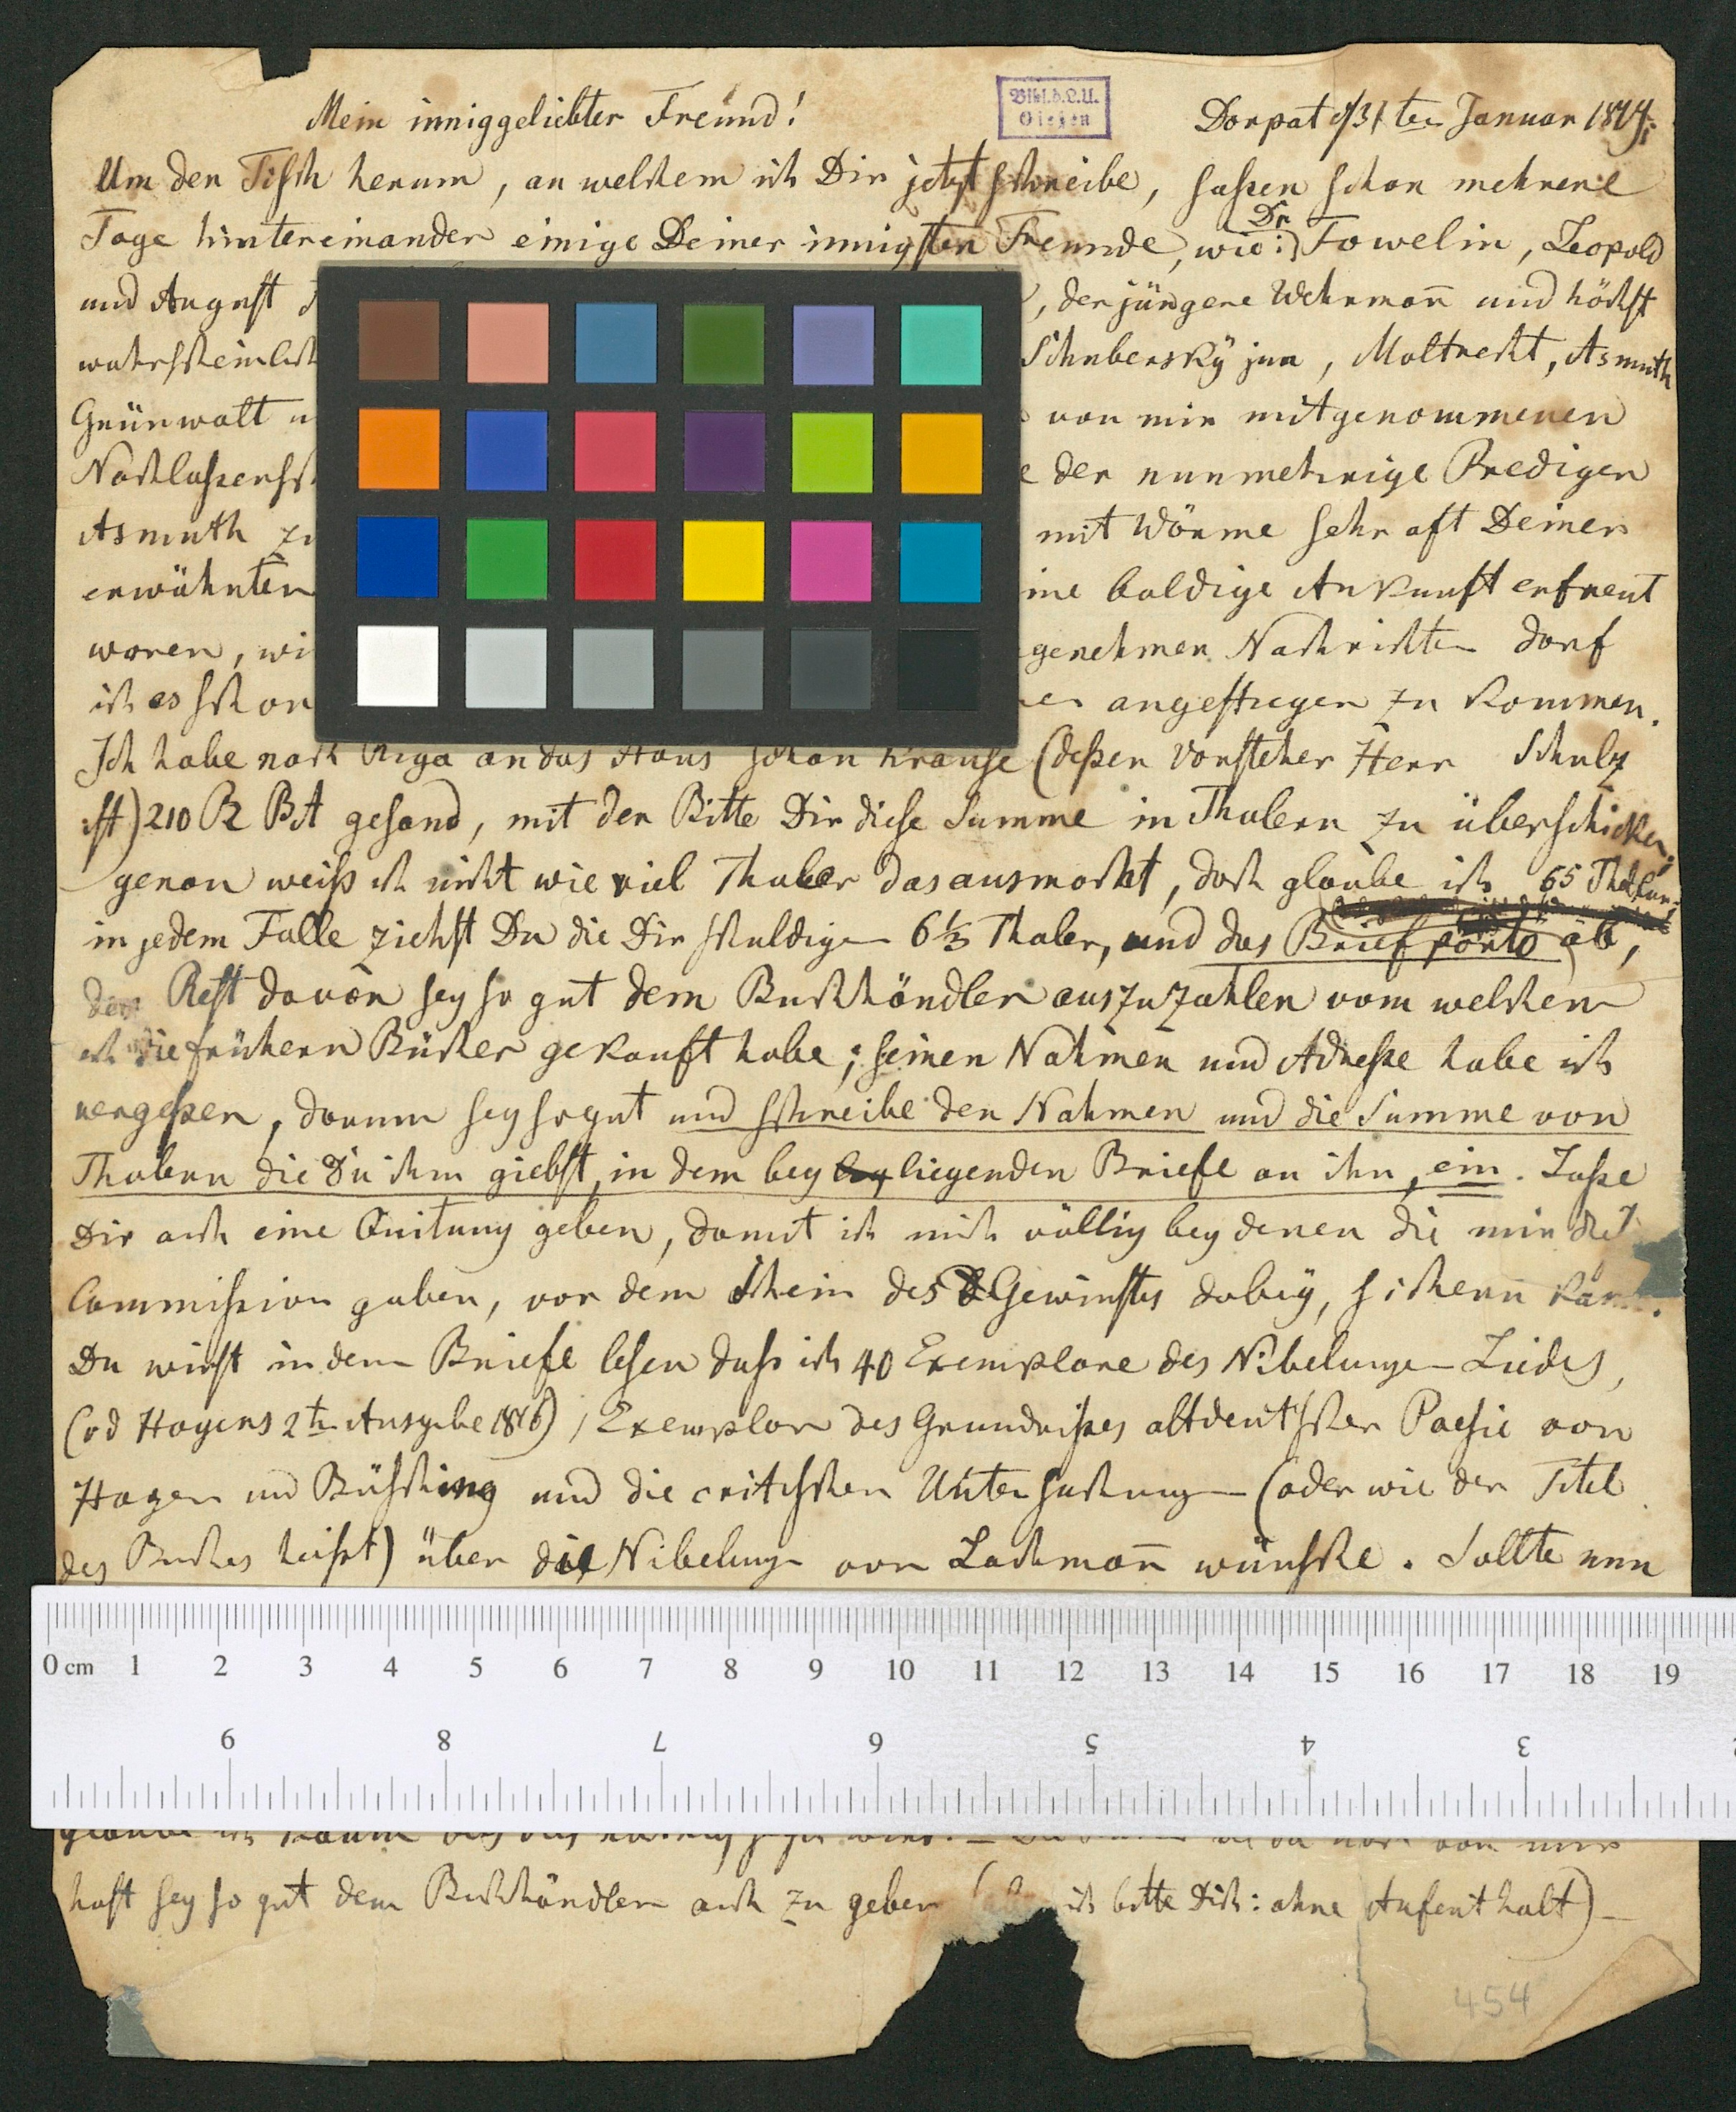 Mein inniggeliebter Freund!
Bibl. d. L. U.
Giessen
Dorpat d 31ten Januar
Um den Tisch herum, an welchem ich Dir jetzt schreibe, saßen schon mehrere
Tage hintereinander einige Deiner innigsten Freunde, wie: Dr Fowelin, Leopold
und August
, der jüngere Wehrmañ und höchst
Schubersky jun, Moltrecht, Asmuth
Grünwalt
von mir mitgenommenen
der nunmehrige Prediger
Asmuth
mit Wärme sehr oft Deiner
erwähnten
baldige Ankunft erfreut
waren,
Nachrichten darf
ich es schon
angestiegen zu kommen.
Ich habe nach Riga an das Haus Johan Krause (deßen Vorsteher Herr Schulz
ist) 210 R BA gesand, mit der Bitte Dir diese Summe in Thalern zu überschicken,
genau weiß ich nicht wie viel Thaler das ausmacht, doch glaube ich 65 Thal
in jedem Falle ziehst Du die Dir schuldigen 6 1/3 Thaler, und das Briefporto ab,
den Rest davon sey so gut dem Buchhändler auszuzahlen vom welchem
ich die frühern Bücher gekauft habe; seinen Nahmen und Adreße habe ich
vergeßen, darum sey so gut und schreibe den Nahmen und die Summe von
Thalern die Du ihm giebst, in dem bey liegenden Briefe an ihn, ein. Laße
Dir auch eine Quitung geben, damit ich mich völlig bey denen die mir die
Commißion gaben, vor dem Schein des Gewinstes dabey, sichern kañ.
Du wirst in dem Briefe lesen daß ich 40 Exemplare des Nibelungen Liedes,
(vd Hagens 2te Ausgabe 1816) 1 Exemplar des Grundrißes altdeutscher Poesie von
Hagen und Büsching und die critischen Untersuchungen (oder wie der Titel
des Buches heißt) über die Nibelungen von Lachmañ wünsche. Sollte nun
0 cm 1 2 3 4 5 6 7 8 9 10 11 12 13 14 15 16 17 18 19
9 8 7 6 5 4 3
glaube ich kaum
hast sey so gut dem Buchhändler auch zu geben ich bitte Dich: ohne Aufenthalt) –
454